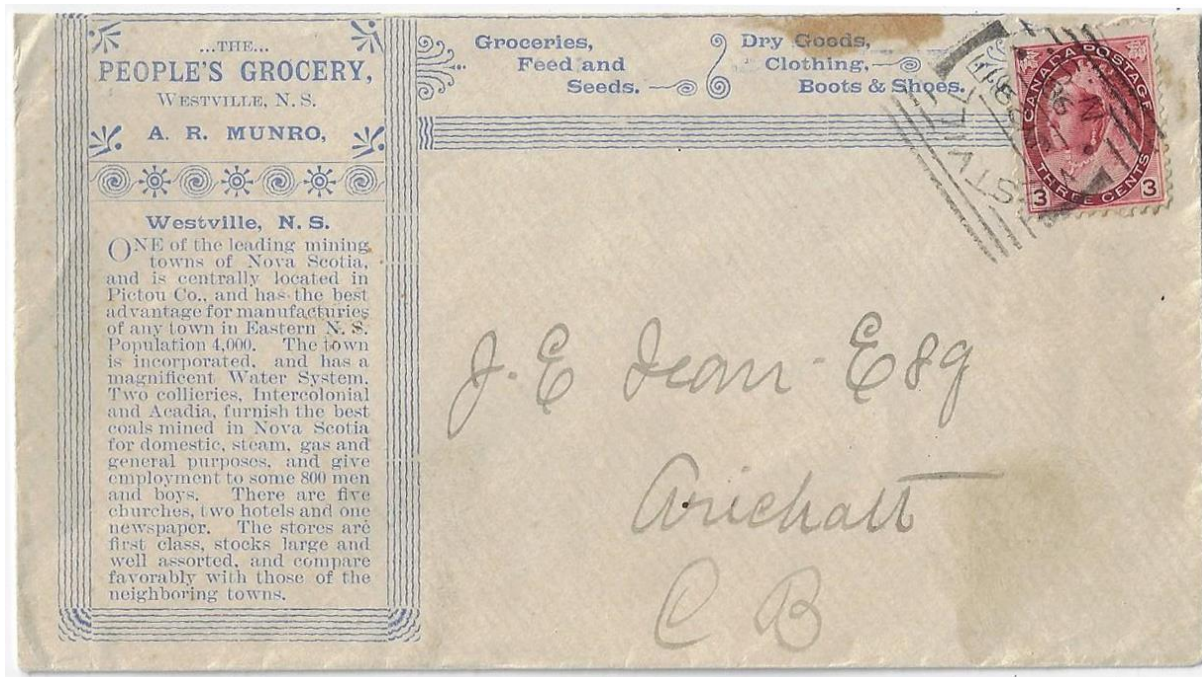 ...THE...
PEOPLE'S GROCERY,
WESTVILLE, N. S.
A. R. MUNRO,
Westville, N. S.
ONE of the leading mining
towns of Nova Scotia,
and is centrally located in
Pictou Co., and has the best
advantage for manufacturies
of any town in Eastern N. S.
Population 4,000. The town
is incorporated, and has a
magnificent Water System.
Two collieries, Intercolonial
and Acadia, furnish the best
coals mined in Nova Scotia
for domestic, steam, gas and
general purposes, and give
employment to some 800 men
and boys. There are five
churches, two hotels and one
newspaper. The stores are
first class, stocks large and
well assorted, and compare
favorably with those of the
neighboring towns.
Groceries,
Feed and
Seeds.
Dry Goods,
Clothing,
Boots & Shoes.
CANADA POSTAGE
THREE CENTS
3 3
J. E Jean Esq
Arichatt
C B